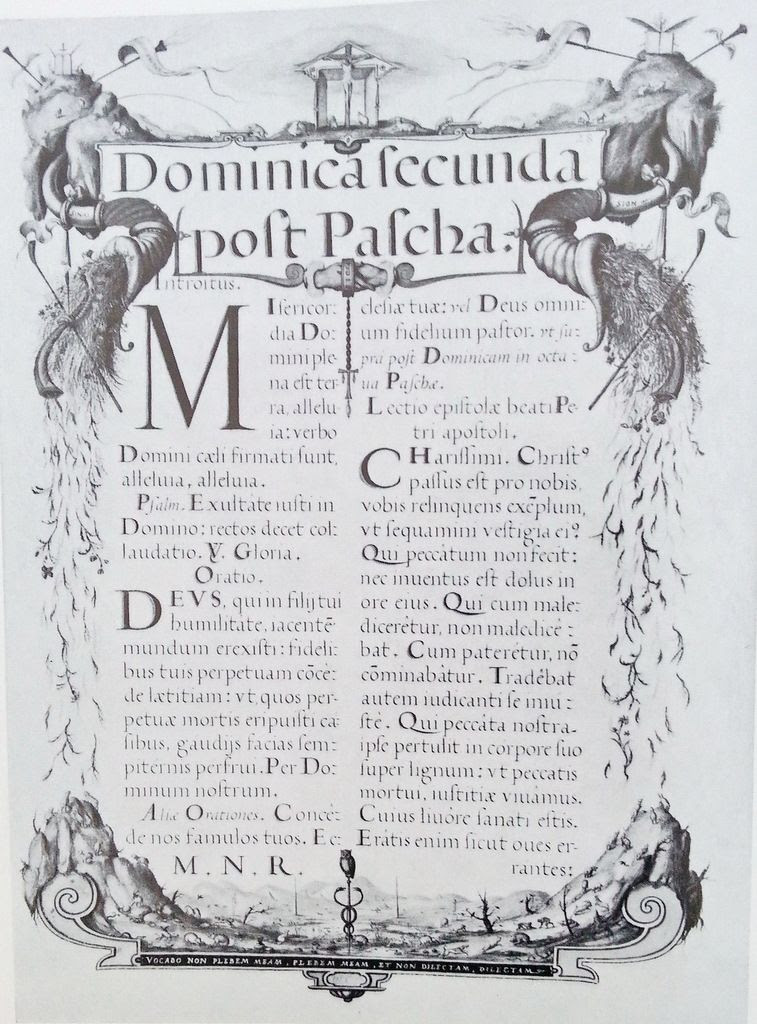 Dominica ſecunda
poſt Paſcha.
SION
Introitus.
MIſericor:
dia Do:
mini ple:
na eſt ter
ra, allelu
ia: verbo
Domini cæli firmati ſunt,
alleluia, alleluia.
Pſalm. Exultate iuſti in
Domino: rectos decet col:
laudatio. V. Gloria.
Oratio.
DEVS, qui in filij tui
humilitate, iacentē
mundum erexiſti: fideli:
bus tuis perpetuam cōcē:
de lætitiam: vt, quos per:
petuæ mortis eripuiſti ca:
ſibus, gaudijs facias ſem:
piternis perfrui. Per Do:
minum noſtrum.
Aliæ Orationes. Concē:
de nos famulos tuos. Ec:
M. N. R.
cleſiæ tuæ: vel Deus omni:
um fidelium paſtor. vt ſu:
pra poſt Dominicam in octa:
ua Paſchæ.
Lectio epiſtolæ beati Pe:
tri apoſtoli.
CHariſſimi. Chriſtꝰ
paſſus eſt pro nobis,
vobis relinquens exēplum,
vt ſequamini veſtigia eiꝰ.
Qui peccátum non fecit:
nec inuentus eſt dolus in
ore eius. Qui cum male:
dicerétur, non maledicé:
bat. Cum paterétur, nō
cōminabátur. Tradébat
autem iudicanti ſe iniu:
ſtè. Qui peccáta noſtra
ipſe pertulit in corpore ſuo
ſuper lignum: vt peccatis
mortui, iuſtitiæ viuámus.
Cuius liuóre ſanati eſtis.
Erátis enim ſicut oues er-
rantes:
VOCABO NON PLEBEM MEAM, PLEBEM MEAM, ET NON DILECTAM, DILECTAM